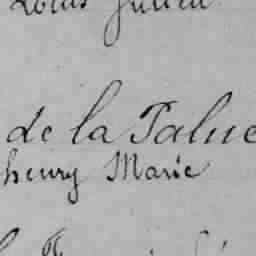 Louis Julien
de la Talue
henry Marie